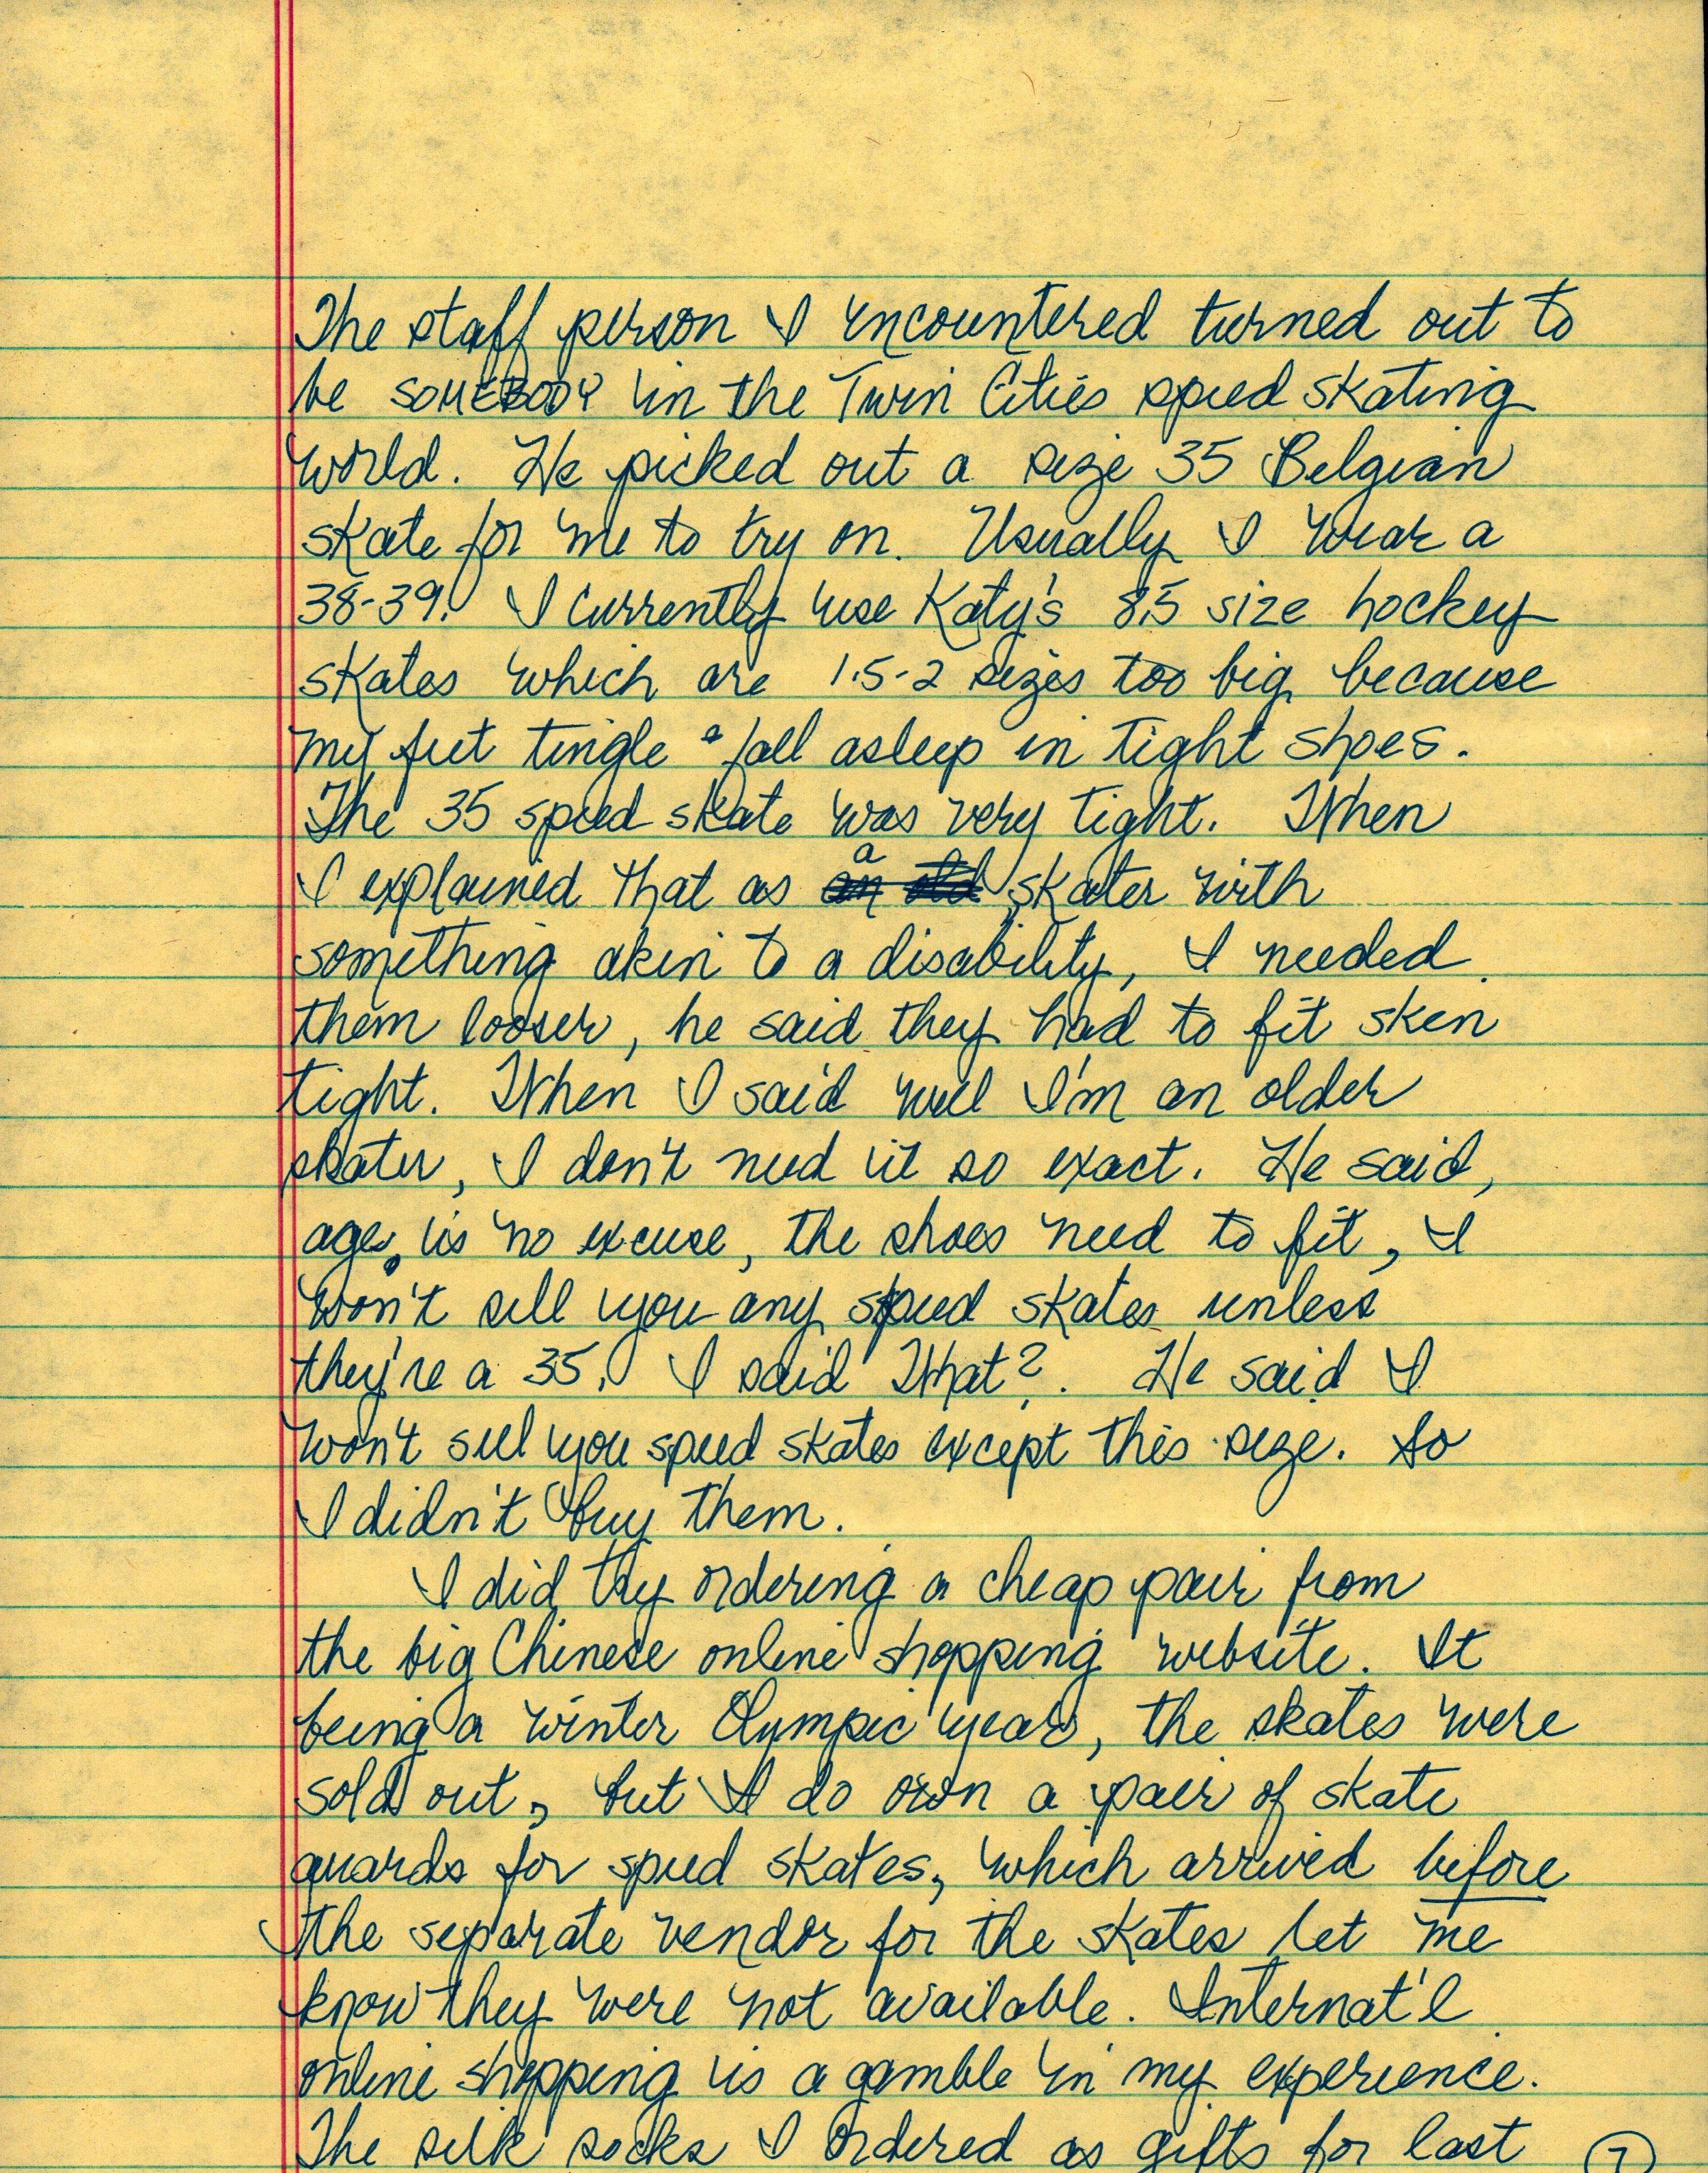 The staff person I encountered turned out to
be SOMEBODY in the Twin Cities speed skating
world. He picked out a size 35 Belgian
skate for me to try on. Usually I wear a
38-39. I currently use Katy's 8.5 size hockey
skates which are 1.5-2 sizes too big because
my feet tingle & fall asleep in tight shoes.
The 35 speed skate was very tight. When
I explained that as a skater with
something akin to a disability, I needed
them looser, he said they had to fit skin
tight. When I said well I'm an older
skater, I don't need it so exact. He said,
age is no excuse, the shoes need to fit, I
won't sell you any speed skates unless
they're a 35. I said What?. He said I
won't sell you speed skates except this size. So
I didn't buy them.
I did try ordering a cheap pair from
the big Chinese online shopping website. It
being a winter Olympic year, the skates were
sold out, but I do own a pair of skate
guards for speed skates, which arrived before
the separate vendor for the skates let me
know they were not available. Internat'l
online shopping is a gamble in my experience.
The silk socks I ordered as gifts for last
7